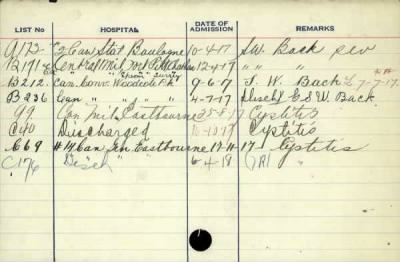 LIST No HOSPITAL DATE OF ADMISSION REMARKS
A172 Can Stat Boulogne 10-4-17 S.W. Back sev
B171 Central Mil Fort Pitt Chatham 12-4-17 " " "
Epsom Surrey
B212. Can. Conv. Woodcote Pk 9-6-17 S. W. Back 7-7-17.
B236 Can " " " " 4-7-17 Disch G S W. Back.
99 Can Mil Eastbourne 25-8-17 Cystitis
C40 Discharged 10-17 Cystitis
C69 #14 Can Gen Eastbourne 17-11-17 Cystitis
C176 Disch " " 6-4-18 (R) "